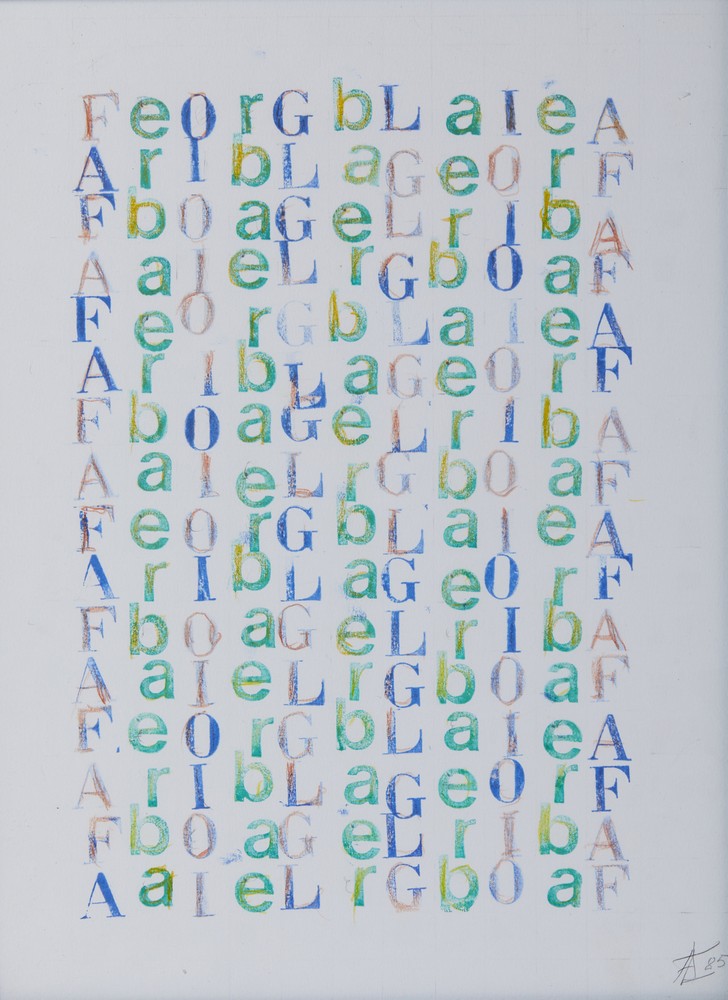 F e O r G b L a I e A
A r I b L a G e O r F
F b O a G e L r I b A
A a I e L r G b O a F
F e O r G b L a I e A
A r I b L a G e O r F
F b O a G e L r I b A
A a I e L r G b O a F
F e O r G b L a I e A
A r I b L a G e O r F
F b O a G e L r I b A
A a I e L r G b O a F
F e O r G b L a I e A
A r I b L a G e O r F
F b O a G e L r I b A
A a I e L r G b O a F
85